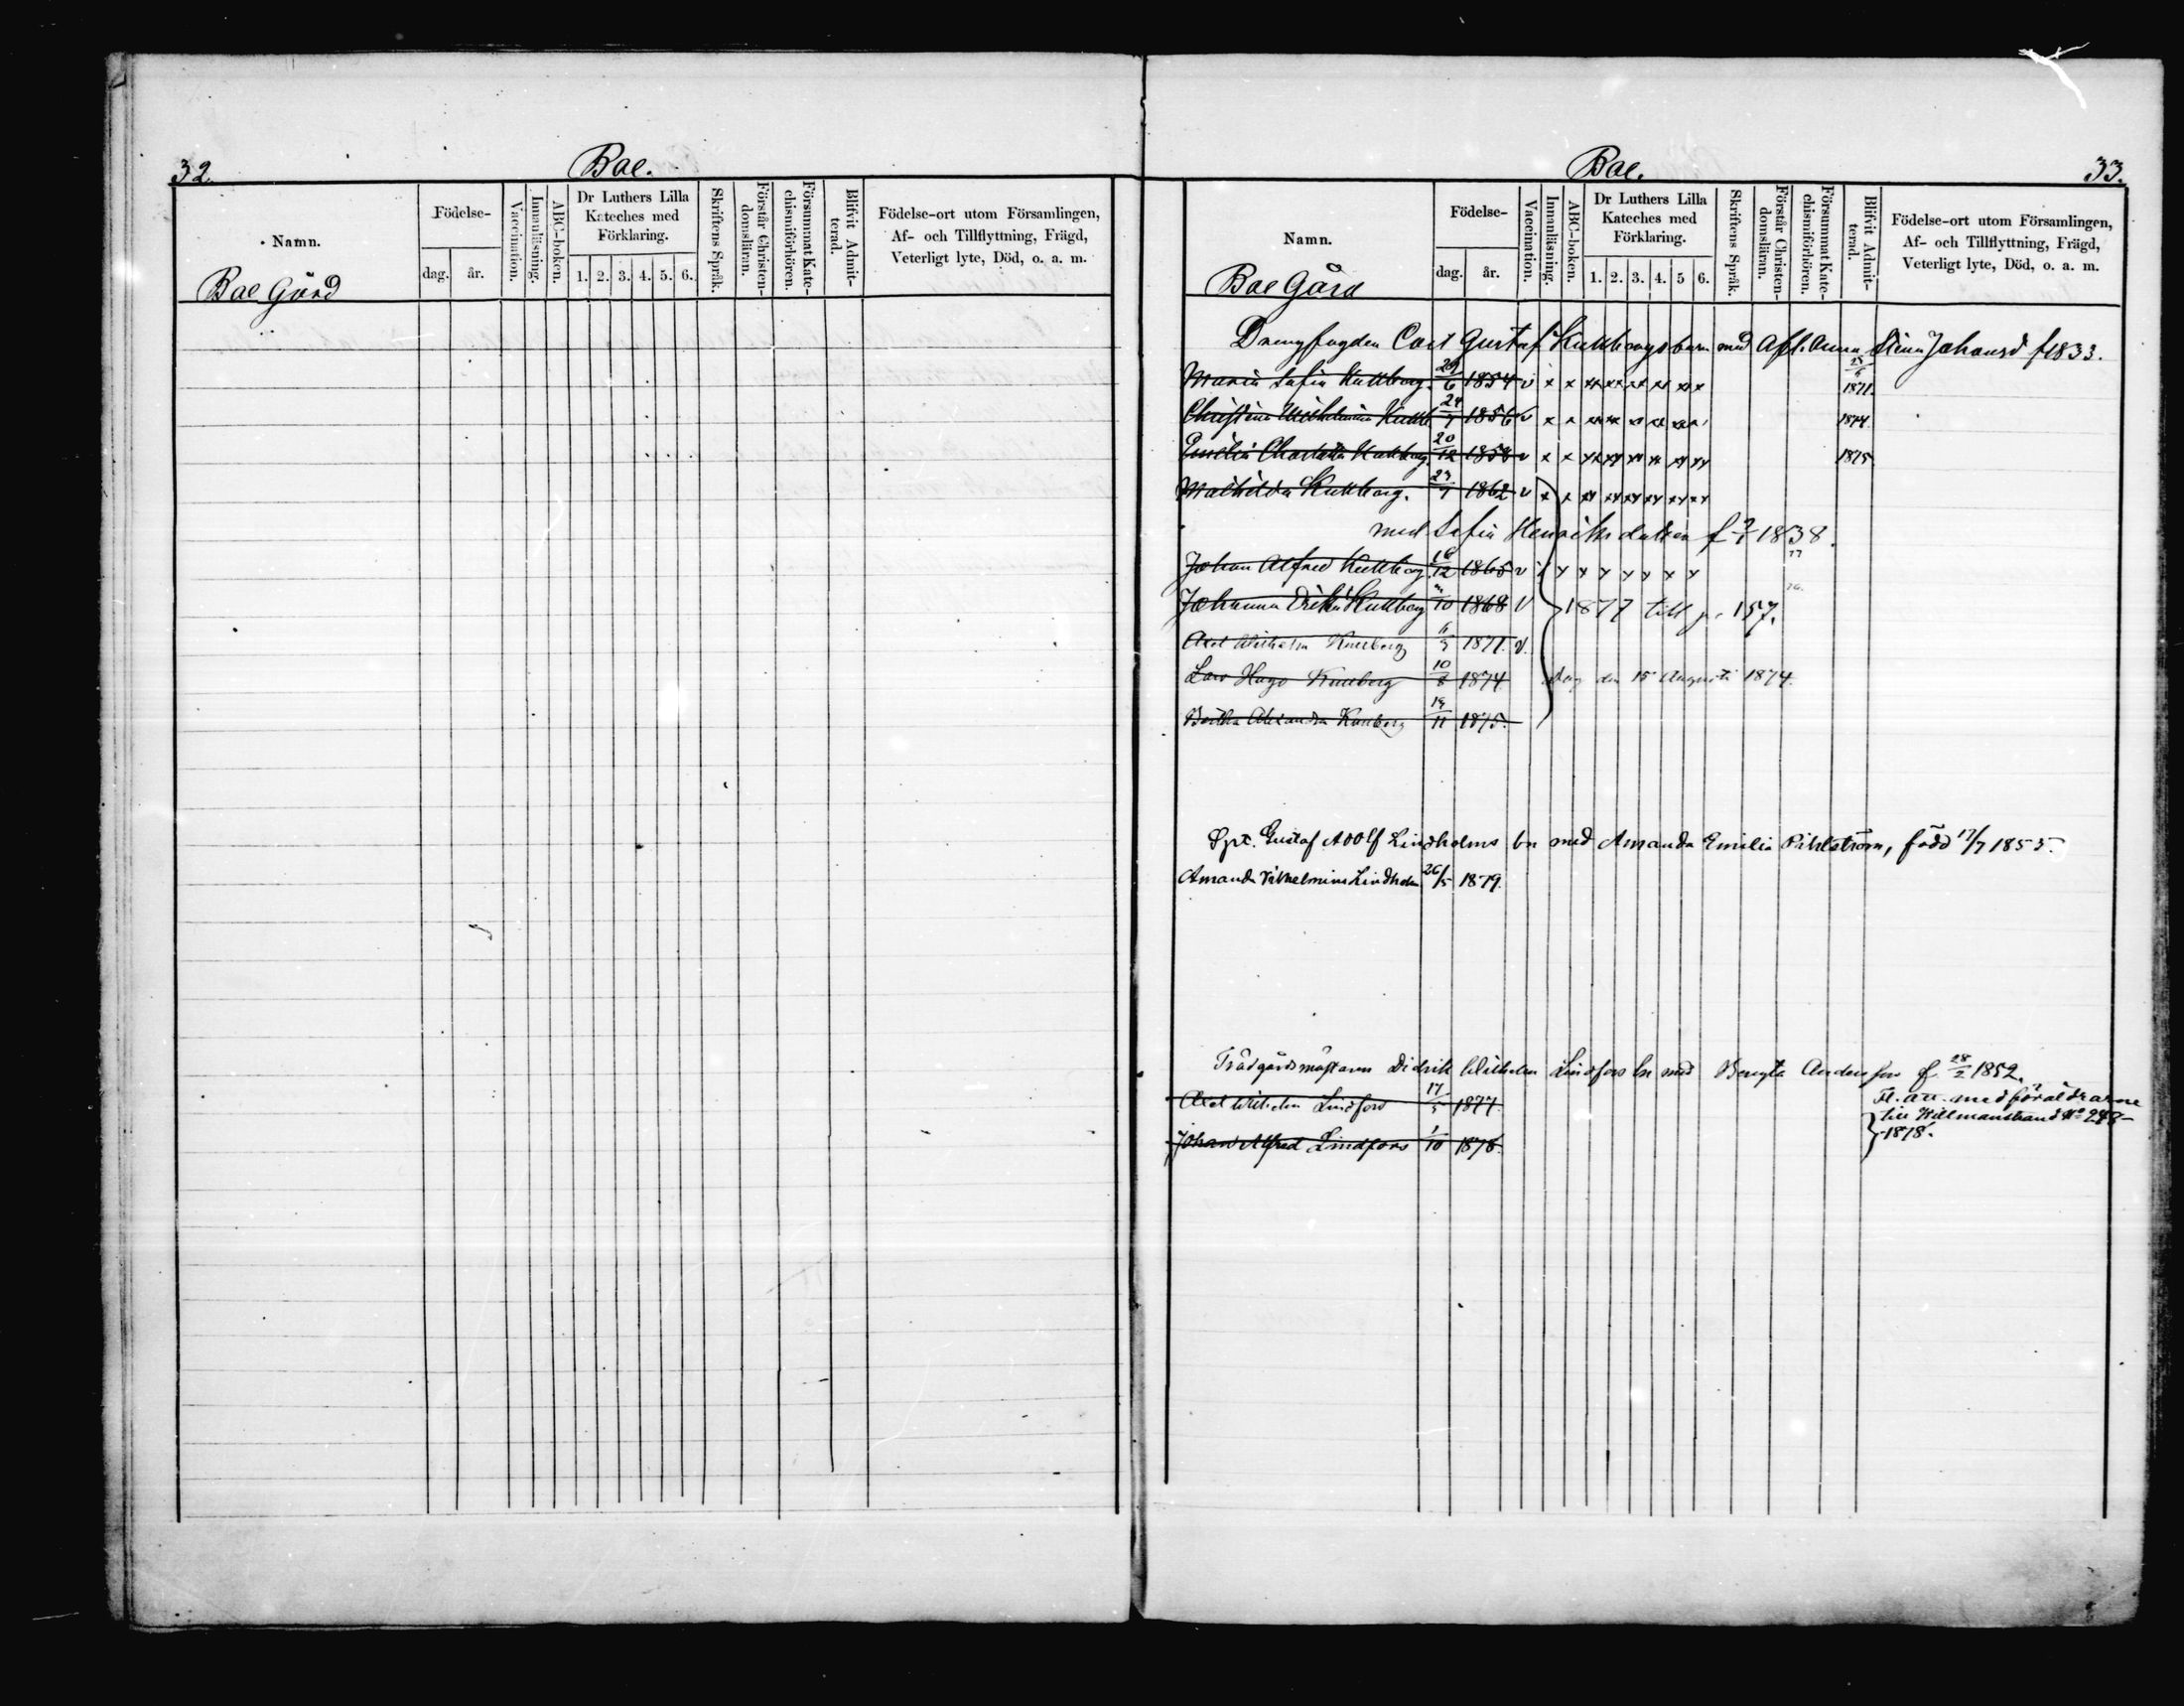 32.
Bae.
Namn.
Födelse-
dag.
år.
Vaccination.
Innanläsning.
ABC-boken.
Dr Luthers Lilla
Kateches med
Förklaring.
1. 2. 3. 4. 5. 6.
Skriftens Språk.
Förstår Christen-
domsläran.
Försummat Kate-
chismiförhören.
Blifvit Admit-
terad.
Födelse-ort utom Församlingen,
Af- och Tillflyttning, Frägd,
Veterligt lyte, Död, o. a. m.
Bae Gård
Bae.
33.
Namn.
Födelse-
dag.
år.
Vaccination.
Innanläsning.
ABC-boken.
Dr Luthers Lilla
Kateches med
Förklaring.
1. 2. 3. 4. 5 6.
Skriftens Språk.
Förstår Christen-
domsläran.
Försummat Kate-
chismiförhören.
Blifvit Admit-
terad.
Födelse-ort utom Församlingen,
Af- och Tillflyttning, Frägd,
Veterligt lyte, Död, o. a. m.
Bae Gård
Drengfogden Carl Gustaf Kullbergs barn med Afl. Anna Stina Johansd f 1833.
Maria Sofia Kullberg. 29/6 1854 v x x xx xx xx xx xx xx 1871.
Christina Wilhelmina Kullb 24/7 1856 v x x xx xx xx xx 1874.
Emilia Charlotta Kullberg 20/12 1858 v x x xx xx xx xx xx xx 1875
Mathilda Kullberg. 23/7 1862 v x x xx xx xx xx xx xx
med Sofia Henriksdotter f 9/1 1838.
Johan Alfred Kullberg 18/12 1865 v x x x x x x x
Johanna Kullberg /10 1868 v 1877 till p. 157.
Axel Wilhelm Kullberg 11/3 1871. v.
Lars Hugo Kullberg 10/8 1874 dog den 15 Augusti 1874.
Bertha Alexandra Kullberg 19/11 1875.
Spt. Gustaf Adolf Lindholms bn med Amanda Emilia Pihlström, född 17/7 1855.
Amanda Vilhelmina Lindholm 26/5 1879.
Trädgårdsmästaren Didrik Wilhelm Lindfors bn med Bengta Andersson f 28/2 1852.
Axel Wilhelm Lindfors 17/5 1877.
Fl. att. med föräldrarne
till Willmanstrand No 248
1878.
Johan Alfred Lindfors 1/10 1878.